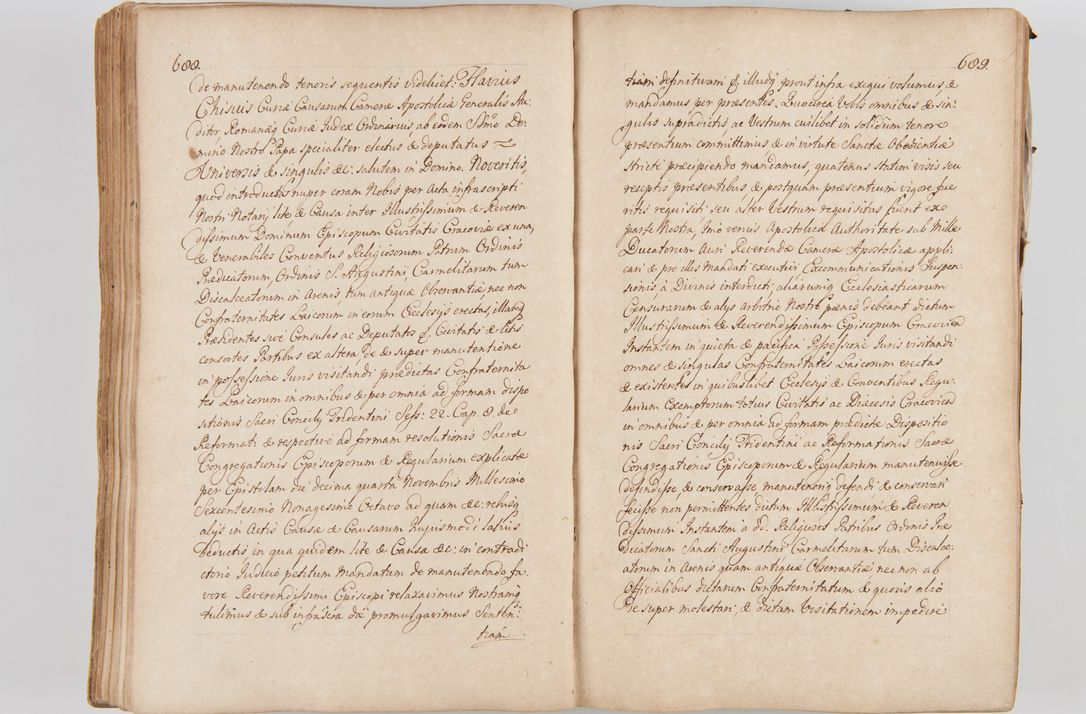 688.
de manutenendo tenoris sequentis videlicet. Flavius
Chisius Curiæ Causarum Cameræ Apostolicæ Generalis Au:
ditor Romanæq Curiæ Iudex Ordinarius ab eodem Ssmo Do:
mino Nostro Papa specialiter electus & deputatus
Universis & singulis &c: salutem in Domino. Noveritis,
quod introducta nuper coram Nobis per Acta infrascripti
Nostri Notarij lite & Causa inter Illustrissimum & Reveren
dissimum Dominum Episcopum Civitatis Cracoviæ ex una,
& Venerabiles Conventus Religiosorum Patrum Ordinis
Prædicatorum, Ordinis S. Augustini Carmelitarum tum
Discalceatorum in Arenis, tum antiquæ Observantiæ, nec non
Confraternitates Laicorum in eorum Ecclesijs erectas, illarumq
Præsidentes sive Consules ac Deputatos d. Civitatis & litis
consortes Partibus ex altera, de & super manutentione
in possessione Iuris visitandi prædictas Confraternita
tes Laicorum in omnibus & per omnia ad formam dispo
sitionis Sacri Concilij Tridentini Sess: 22. Cap. 8. de
Reformat: & respective ad formam resolutionis Sacræ
Congregationis Episcoporum & Regularium explicatæ
per Epistolam die decima quarta Novembris Millesimo
Sexcentesimo Nonagesimo Octavo ad quam &c: rebusq
alijs in Actis Causæ & Causarum hujusmodi latius
deductis, in qua quidem lite & Causa &c: in contradi
ctorio Iudicio petitum Mandatum de manutenendo fa
vore Reverendissimi Episcopi relaxavimus Nostramq
tulimus & sub infrascta die promulgavimus Senten:
tiam
689.
tiam definitivam & illudq prout infra exequi volumus &
mandamus per præsentes. Quocirca Vobis omnibus & sin:
gulis supradictis ac Vestrum cuilibet in solidum tenore
præsentium committimus & in virtute Sanctæ Obedientiæ
stricte præcipiendo mandamus, quatenus statim visis seu
receptis præsentibus & postquam præsentium vigore fue
ritis requisiti seu alter Vestrum requisitus fuerit ex
parte Nostra, Imo verius Apostolica Authoritate sub Mille
Ducatorum Auri Reverendæ Cameræ Apostolicæ appli
cari & pro illis Mandati executivi, Excommunicationis Suspen
sionis à Divinis interdicti, aliarumq Ecclesiasticarum
Censurarum & alijs arbitrij Nostri pœnis debeant dictum
Illustrissimum & Reverendissimum Episcopum Cracovien
Instantem in quieta & pacifica Possessione Iuris visitandi
omnes & singulas Confraternitates Laicorum erectas
& existentes in quibuslibet Ecclesijs & Conventibus Regu:
larium Exemptorum totius Civitatis ac Diæcesis Cracovien
in omnibus & per omnia ad formam prædictæ Dispositio
nis Sacri Concilij Tridentini ac Reformationis Sacræ
Congregationis Episcoporum & Regularium manutenuisse
defendisse, & conservasse manuteneriq defendi & conservari
fecisse non permittentes dictum Illustrissimum & Reveren
dissimum Instantem a dd. Religiosis Patribus Ordinis Præ
dicatorum Sancti Augustini Carmelitarum tum Discalce:
atorum in Arenis quam antiquæ Observantiæ nec non ab
Officialibus dictarum Confraternitatum & quovis alio
de super molestari, & dictam Visitationem impedire